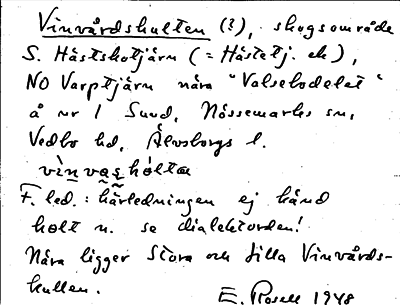 Vinvårdshulten (?), skogsområde
S. Hästskotjärn (= Håstetj. ek),
NO Varptjärn nära "Valsebodelet"
å nr 1 Sund, Nössemarks sn,
Vedbo hd, Älvsborgs l.
F. led.: härledningen ej känd
holt n. se dialektorden!
Nära ligger Stora och Lilla Vinvårds-
kullen.
E. Rosell 1948